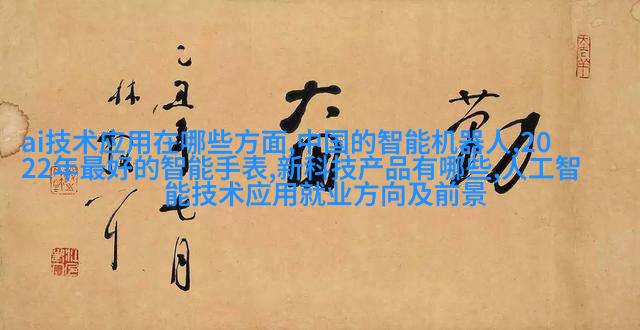 ai技术应用在哪些方面,中国的智能机器人,20
22年最好的智能手表,新科技产品有哪些,人工智
能技术应用就业方向及前景
勤
乙丑年七月
林